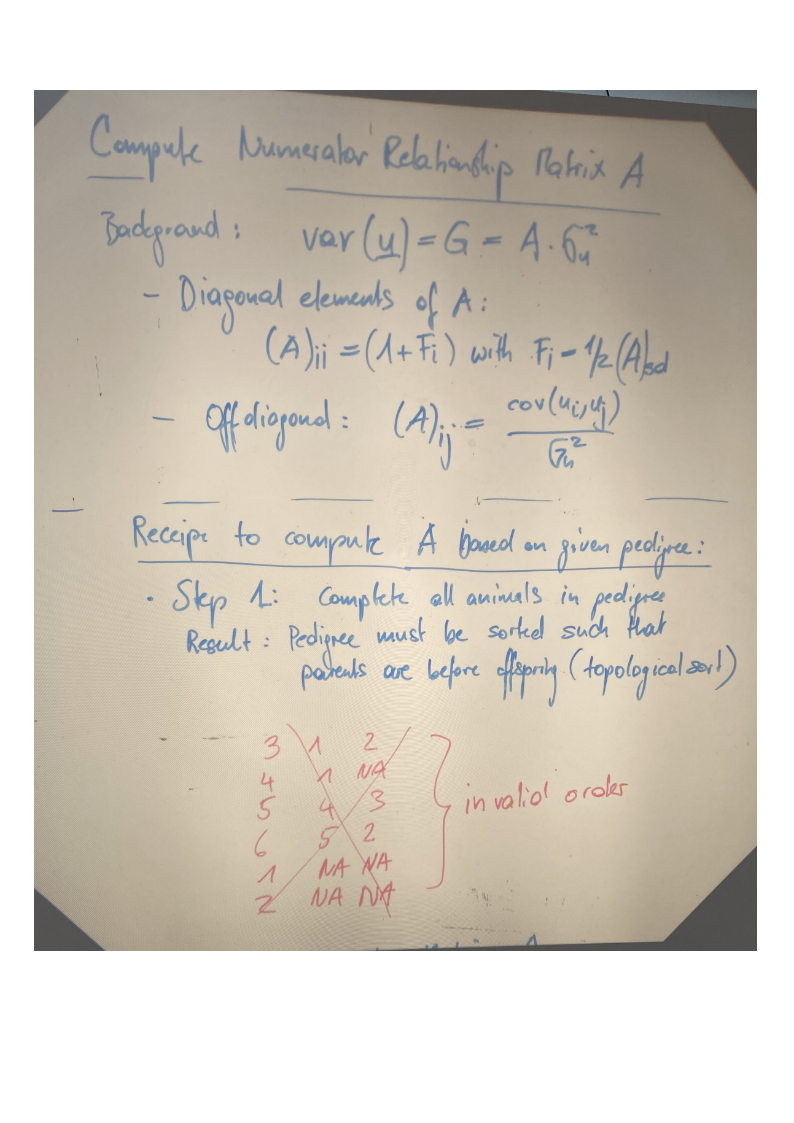 Compute Numerator Relationship Matrix A
Background: var(u) = G = A · σu²
- Diagonal elements of A:
(A)ii = (1 + Fi) with Fi = 1/2 (A)sd
- Offdiagonal: (A)ij = cov(ui, uj) / σu²
Receipe to compute A based on given pedigree:
· Step 1: Complete all animals in pedigree
Result: Pedigree must be sorted such that
parents are before offspring (topological sort)
3 1 2
4 1 NA
5 4 3
6 5 2
1 NA NA
2 NA NA
invalid order